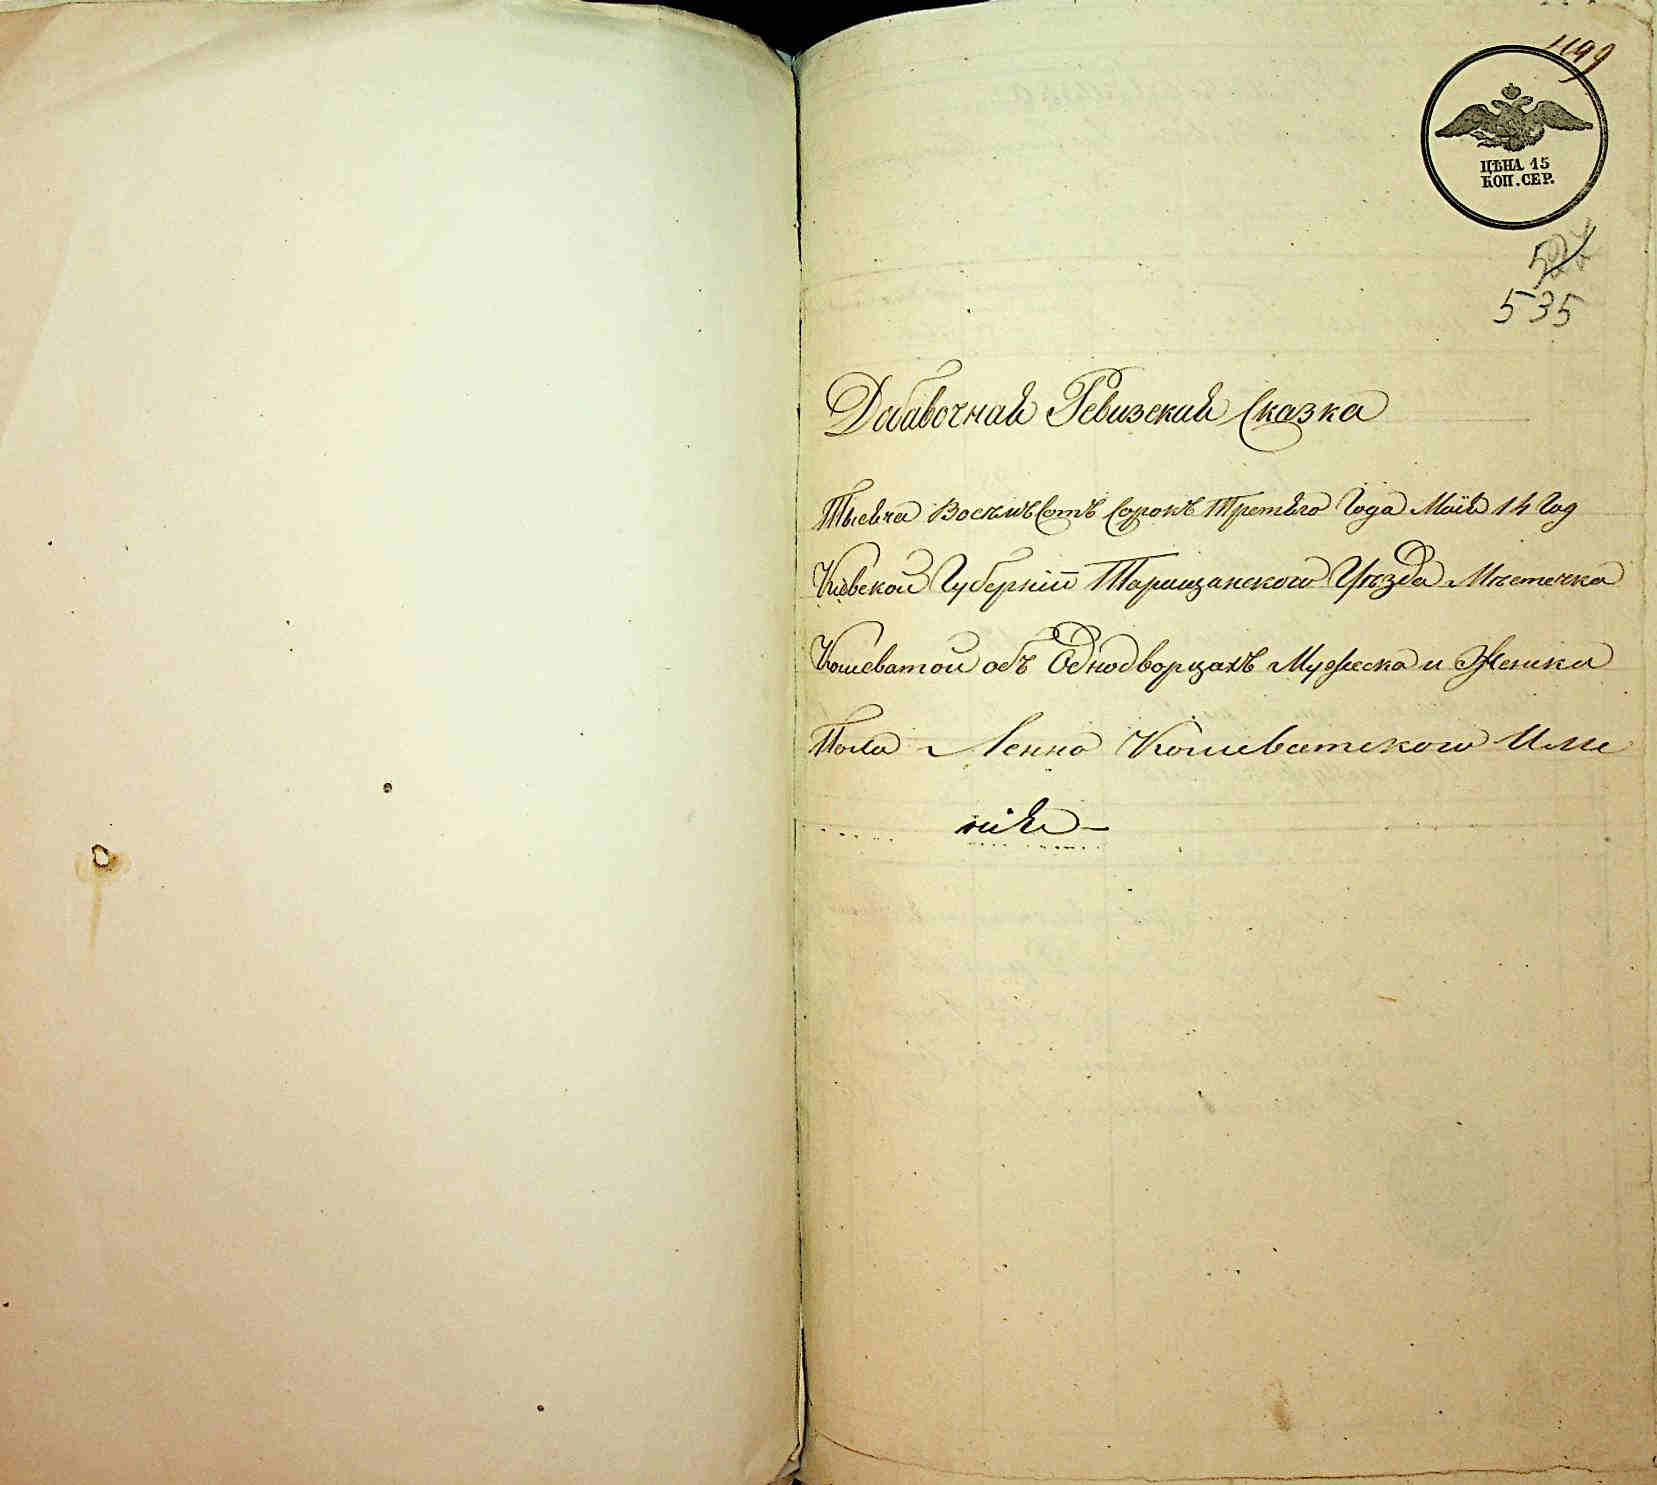 1199
ЦѢНА 15
КОП. СЕР.
527
535
Добавочная Ревизская Сказка
Тысяча Восемь Сотъ Сорокъ Третьго Года Маія 14 Год
Кіевской Губерніи Таращанского Уѣзда Мѣстечка
Кошеватой объ Однодворцахъ Мужеска и Женска
Пола Ленно Кошеватского Име
нія